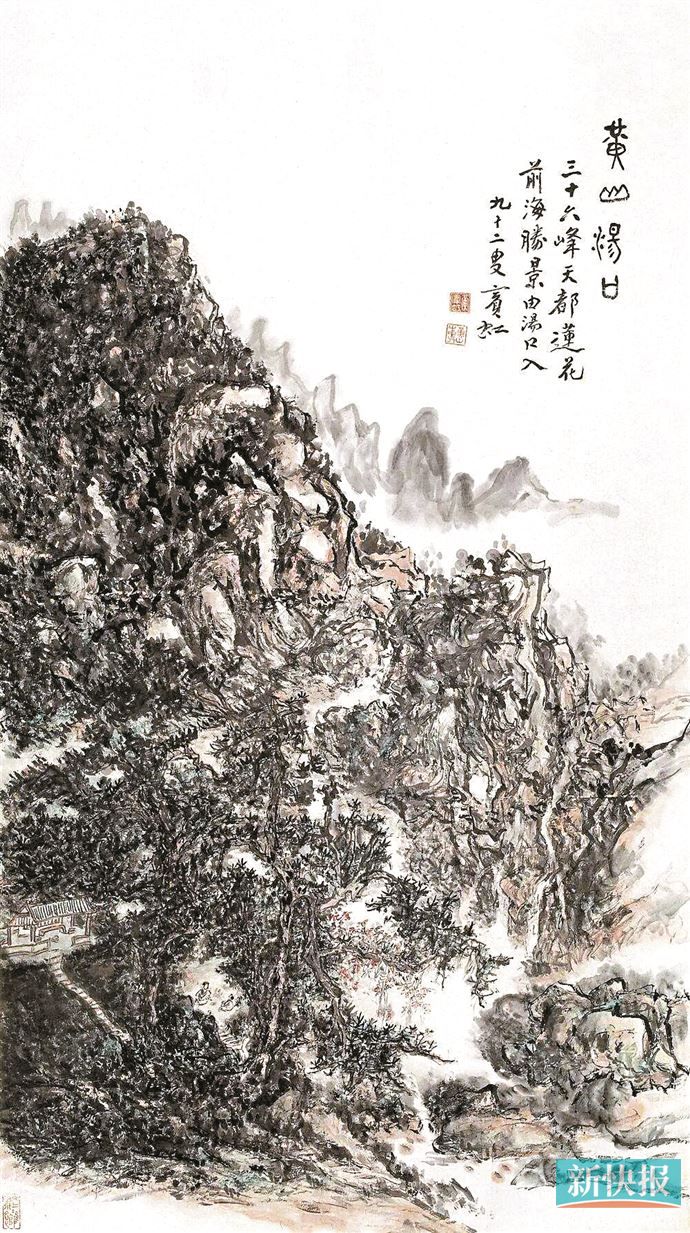 黄山湯口
三十六峰天都蓮花
前海勝景由湯口入
九十二叟賓虹
新快报